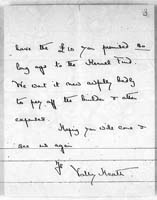 3.
have the £10 you promised so
long ago to the Memorial Fund.
We want it now awfully badly
to pay off the builder & other
expenses.
Hoping you will come &
see us again
Yrs